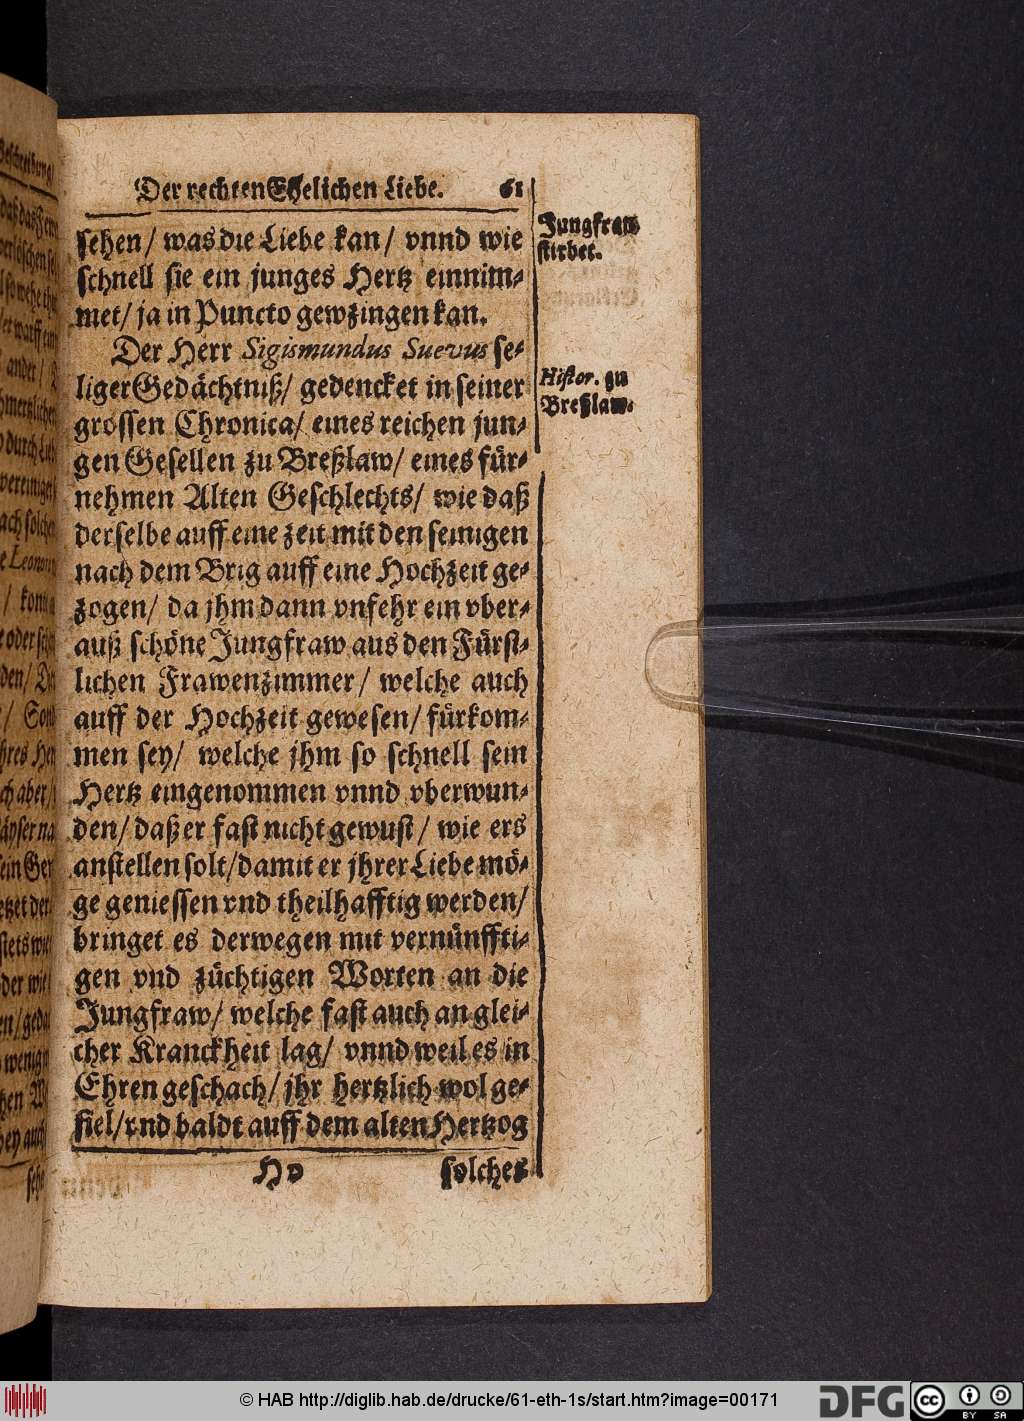 Der rechten Ehelichen Liebe. 61
Jungfraw
stirbet.
sehen/ was die Liebe kan/ vnnd wie
schnell sie ein junges Hertz einnim-
met/ ja in Puncto gewzingen kan.
Der Herr Sigismundus Suevus se-
liger Gedächtniß/ gedencket in seiner
Histor. zu
Breßlaw.
grossen Chronica/ eines reichen jun-
gen Gesellen zu Breßlaw/ eines für-
nehmen Alten Geschlechts/ wie daß
derselbe auff eine zeit mit den seinigen
nach dem Brig auff eine Hochzeit ge-
zogen/ da jhm dann vnfehr ein vber-
auß schöne Jungfraw aus den Fürst-
lichen Frawenzimmer/ welche auch
auff der Hochzeit gewesen/ fürkom-
men sey/ welche jhm so schnell sein
Hertz eingenommen vnnd vberwun-
den/ daß er fast nicht gewust/ wie ers
anstellen solt/ damit er jhrer Liebe mö-
ge geniessen vnd theilhafftig werden/
bringet es derwegen mit vernünffti-
gen vnd züchtigen Worten an die
Jungfraw/ welche fast auch an glei-
cher Kranckheit lag/ vnnd weil es in
Ehren geschach/ jhr hertzlich wol ge-
fiel/ vnd baldt auff dem alten Hertzog
H v solches
© HAB http://diglib.hab.de/drucke/61-eth-1s/start.htm?image=00171
DFG
cc
BY SA